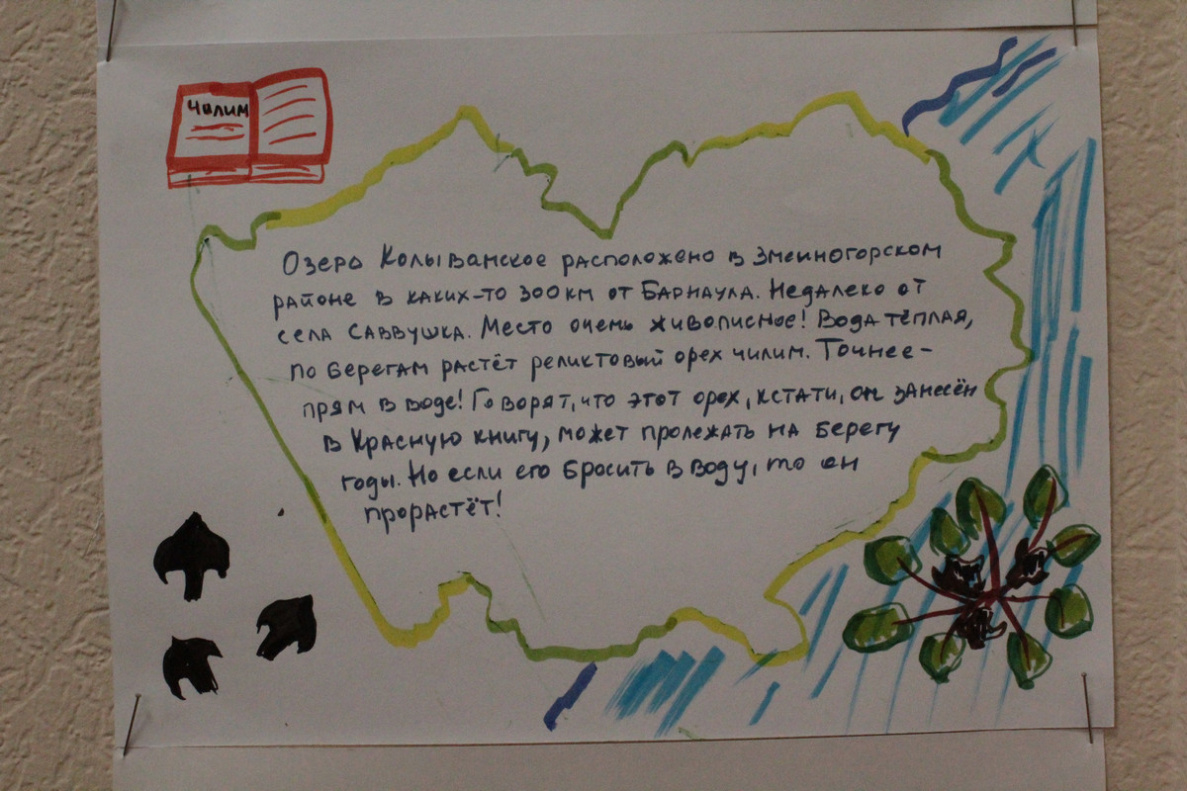 Чилим
Озеро Колыванское расположено в Змеиногорском
районе в каких-то 300 км от Барнаула. Недалеко от
села Саввушка. Место очень живописное! Вода тёплая,
по берегам растёт реликтовый орех чилим. Точнее -
прям в воде! Говорят, что этот орех, кстати, он занесён
в Красную книгу, может пролежать на берегу
годы. Но если его бросить в воду, то он
прорастёт!